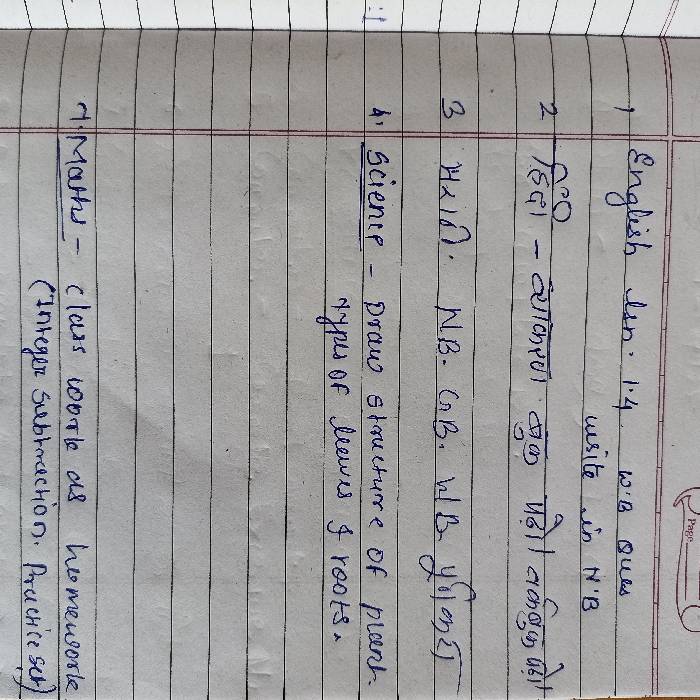 Page
1 English Lsn. 1.4. W.B Ques
write in N.B
2 हिंदी - व्याकरण बुक
3 मराठी. N.B. G.B. W.B. पूर्ण करणे
4. Science - Draw structure of plant.
types of leaves & roots.
7. Maths - class work as homework
(Integer subtraction. Practice set)